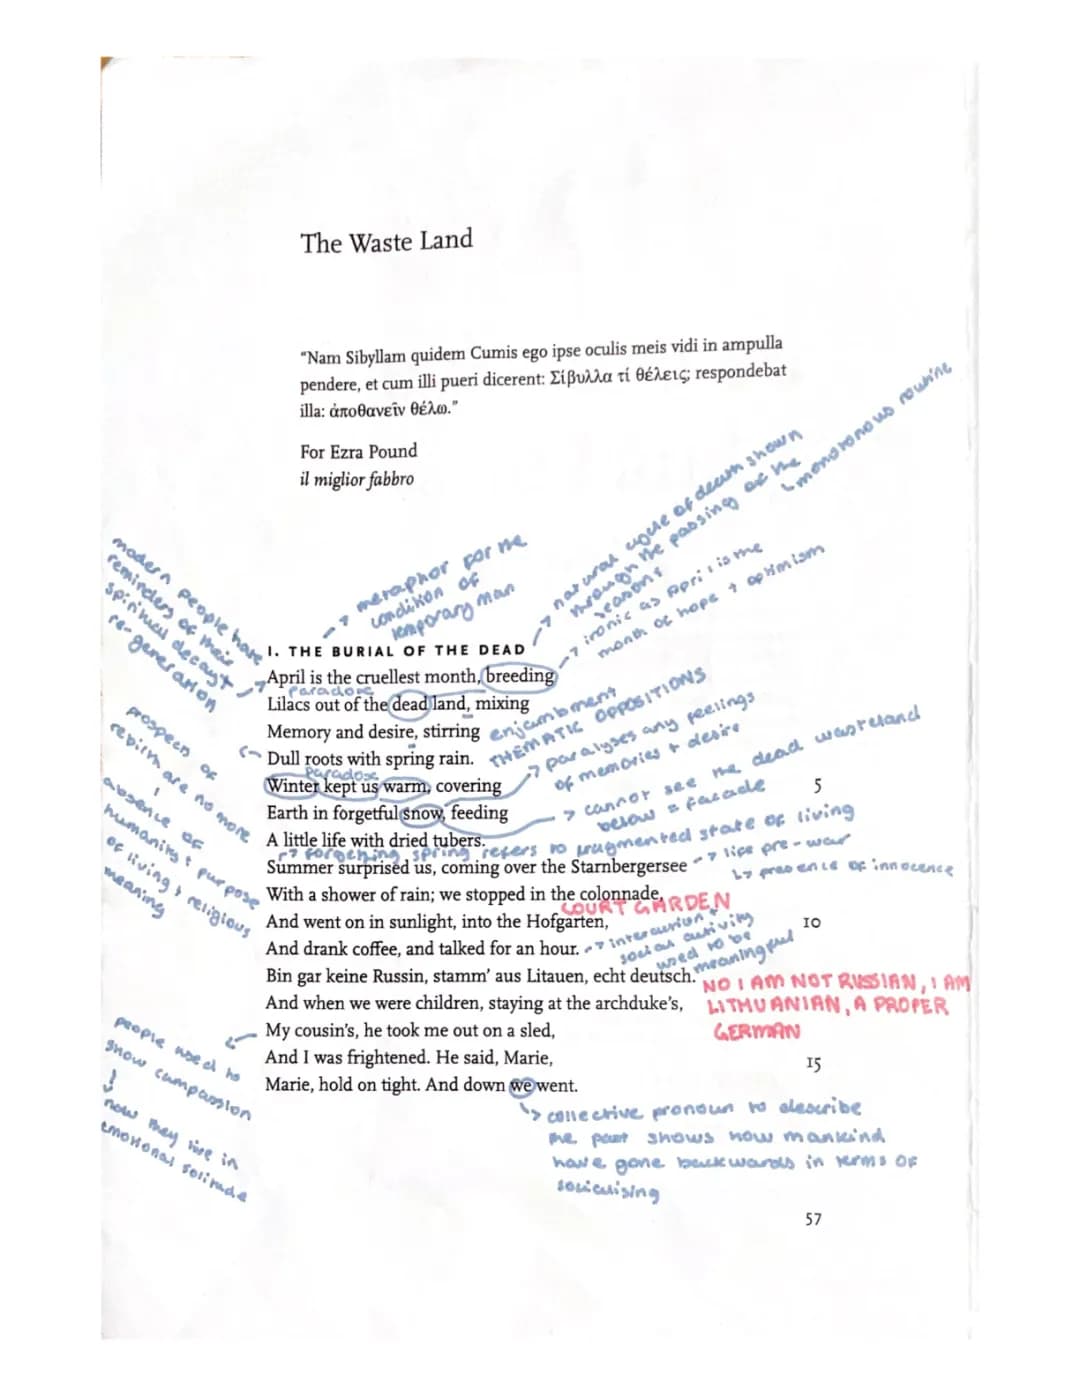 The Waste Land
"Nam Sibyllam quidem Cumis ego ipse oculis meis vidi in ampulla
pendere, et cum illi pueri dicerent: Σίβυλλα τί θέλεις; respondebat
illa: ἀποθανεῖν θέλω."
For Ezra Pound
il miglior fabbro
natural cycle of death shown
through the passing of the
seasons
↳ monotonous routine
→ ironic as April is the
month of hope + optimism
→ metaphor for the
condition of
temporary man
modern people have
reminders of their
spiritual decay +
re-generation
I. THE BURIAL OF THE DEAD
April is the cruellest month, breeding
paradox
Lilacs out of the dead land, mixing
Memory and desire, stirring
enjambment
THEMATIC OPPOSITIONS
Dull roots with spring rain.
prospects of
rebirth are no more
absence of
humanity + purpose
of living, religious
meaning
paradox
Winter kept us warm, covering
→ paralyses any feelings
of memories + desire
5
Earth in forgetful snow, feeding
→ cannot see the dead wasteland
below = facade
A little life with dried tubers.
→ forgetting spring, refers to fragmented state of living
Summer surprised us, coming over the Starnbergersee
→ life pre-war
↳ presence of innocence
With a shower of rain; we stopped in the colonnade,
COURT GARDEN
And went on in sunlight, into the Hofgarten,
10
And drank coffee, and talked for an hour.
→ interaction +
social activity
used to be
meaningful
Bin gar keine Russin, stamm' aus Litauen, echt deutsch.
NO I AM NOT RUSSIAN, I AM
LITHUANIAN, A PROPER
GERMAN
And when we were children, staying at the archduke's,
My cousin's, he took me out on a sled,
people used to
show compassion
↓
now they live in
emotional solitude
And I was frightened. He said, Marie,
15
Marie, hold on tight. And down we went.
↳ collective pronoun to describe
the past shows how mankind
have gone backwards in terms of
socialising
57